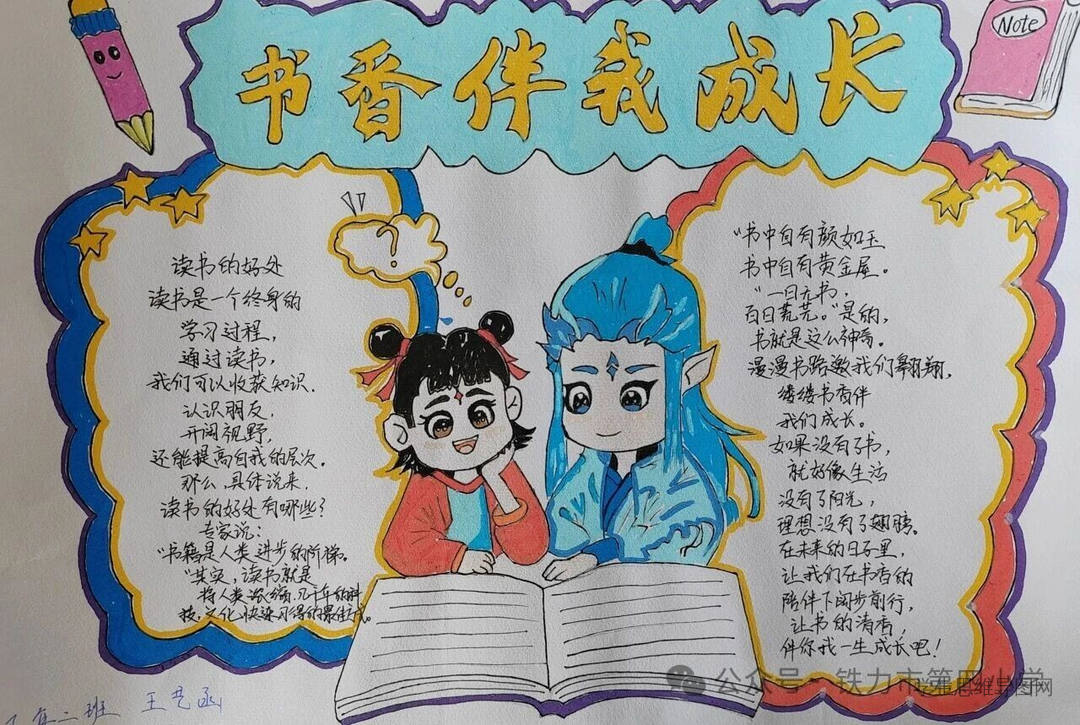 书香伴我成长
Note
?
读书的好处
读书是一个终身的
学习过程,
通过读书,
我们可以收获知识.
认识朋友,
开阔视野,
还能提高自我的层次.
那么,具体说来.
读书的好处有哪些?
专家说:
“书籍是人类进步的阶梯。
“其实,读书就是
将人类浓缩几千年的科
技,文化快速习得的最佳方式。
“书中自有颜如玉
书中自有黄金屋。
“一日无书,
百日荒芜。”是的,
书就是这么神奇。
漫漫书路邀我们翱翔,
缕缕书香伴
我们成长。
如果没有了书,
就好像生活
没有了阳光,
理想没有了翅膀。
在未来的日子里,
让我们在书香的
陪伴下阔步前行,
让书的清香,
伴你我一生成长吧!
二班 王艺函
公众号·铁力市第四小学
思维导图网